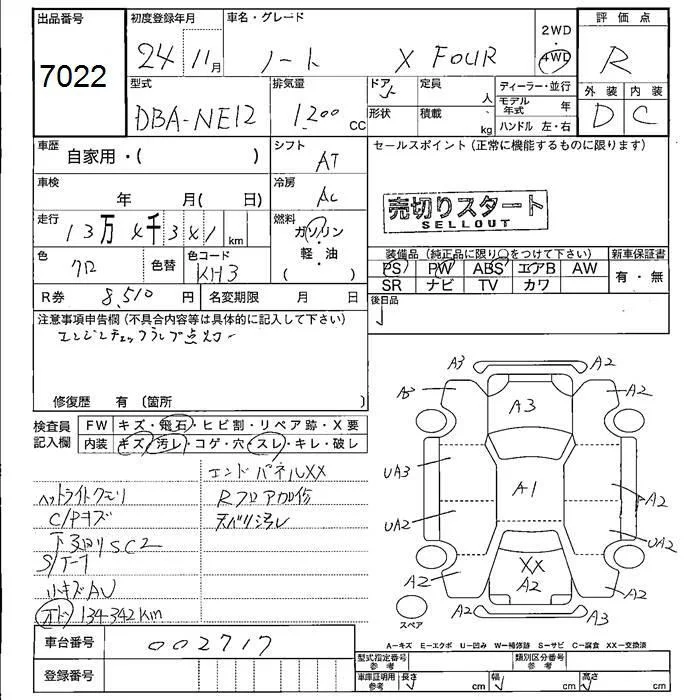 出品番号 初度登録年月 車名・グレード 2WD・4WD 評価点
7022 24 11月 ノート X FOUR R
型式 排気量 ドア 定員 人 ディーラー・並行 外装 内装
DBA-NE12 1200 CC 形状 積載 kg モデル年式 年 D C
ハンドル 左・右
車歴 自家用・( ) シフト AT セールスポイント(正常に機能するものに限ります)
車検 年 月( 日) 冷房 AC
売切りスタート
SELLOUT
走行 13万4千341 km 燃料 ガソリン・軽・油 ( )
色 クロ 色替 色コード KH3
装備品(純正品に限り○をつけて下さい) 新車保証書
PS PW ABS エアB AW 有・無
SR ナビ TV カワ
R券 8,510 円 名変期限 月 日 後日品
注意事項申告欄(不具合内容等は具体的に記入して下さい)
エンジンチェックランプ点灯
修復歴 有(箇所 )
検査員記入欄 FW キズ・飛石・ヒビ割・リペア跡・X要
内装 キズ・汚レ・コゲ・穴・スレ・キレ・破レ
エンドパネルXX
ヘットライトクモリ Rフロア
C/Pキズ スベリ汚レ
下廻りSC2
小キズAU
オド 134342Km
A3 A2
A3 A2
A3
UA3 A1 A2
UA2 UA2
XX
A2 A2 A2
A2 A3
スペア
車台番号 002717
A−キズ E−エクボ U−凹み W−補修跡 S−サビ C−腐食 XX−交換済
登録番号
型式指定番号 参考 類別区分番号 参考
車庫証明用 参考 長さ cm 幅 cm 高さ cm